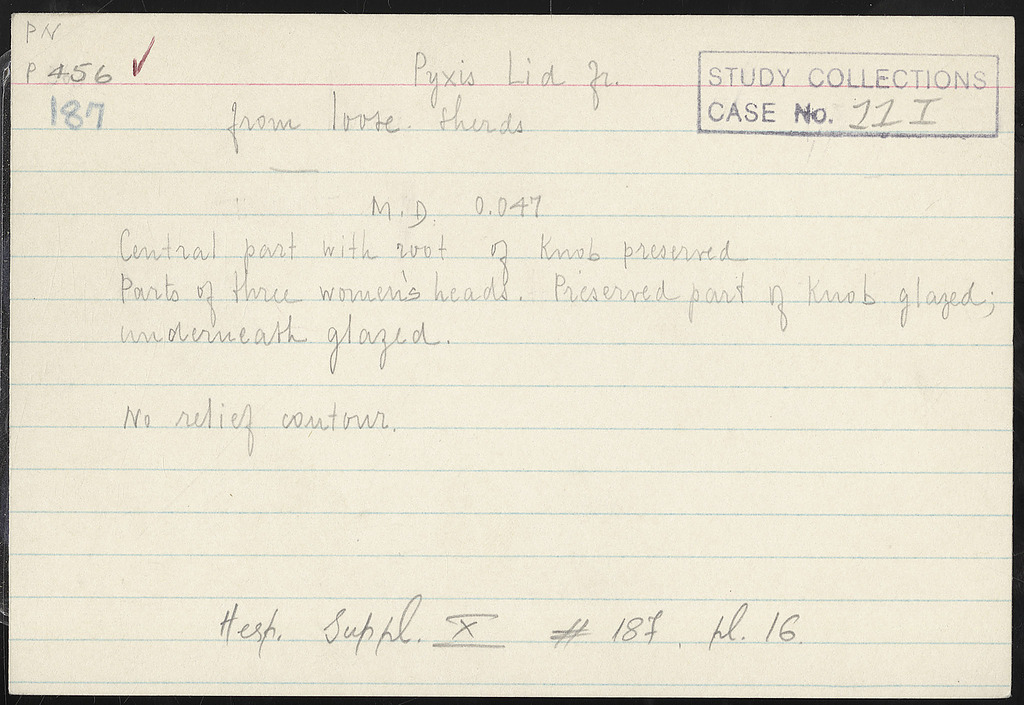 PN
P 456 ✓
Pyxis Lid fr.
STUDY COLLECTIONS
CASE No. 11 I
187
from loose sherds
M.D. 0.047
Central part with root of Knob preserved
Parts of three women's heads. Preserved part of Knob glazed;
underneath glazed.
No relief contour.
Hesp. Suppl. X # 187, pl. 16.